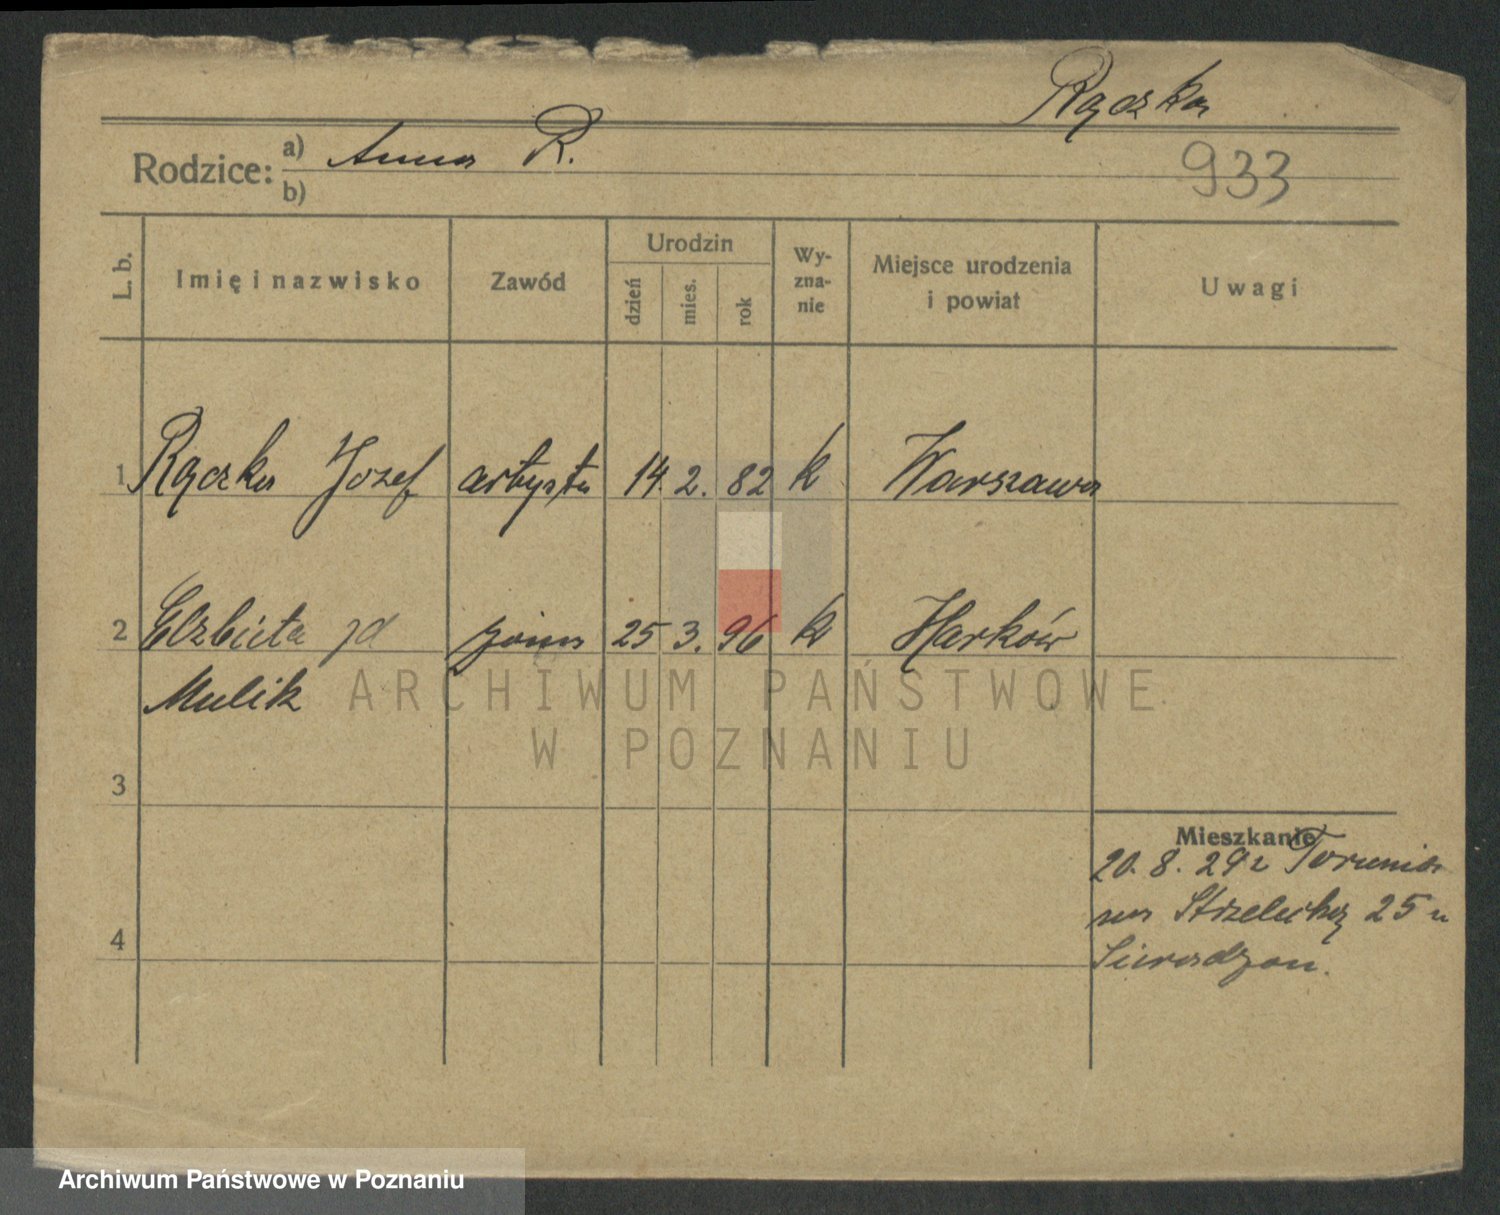 Rączka
Rodzice: a) Anna R.
b)
933
L. b. Imię i nazwisko Zawód Urodzin dzień mies. rok Wy-zna-nie Miejsce urodzenia i powiat Uwagi
1 Rączka Józef artysta 14. 2. 82 k Warszawa
2 Elżbieta zd żona 25 3. 96 k Harków
Mulik
ARCHIWUM PAŃSTWOWE
W POZNANIU
3
Mieszkanie
20. 8. 29 z Torunia
na Strzelecką 25 u
4
Sieradzan.
Archiwum Państwowe w Poznaniu